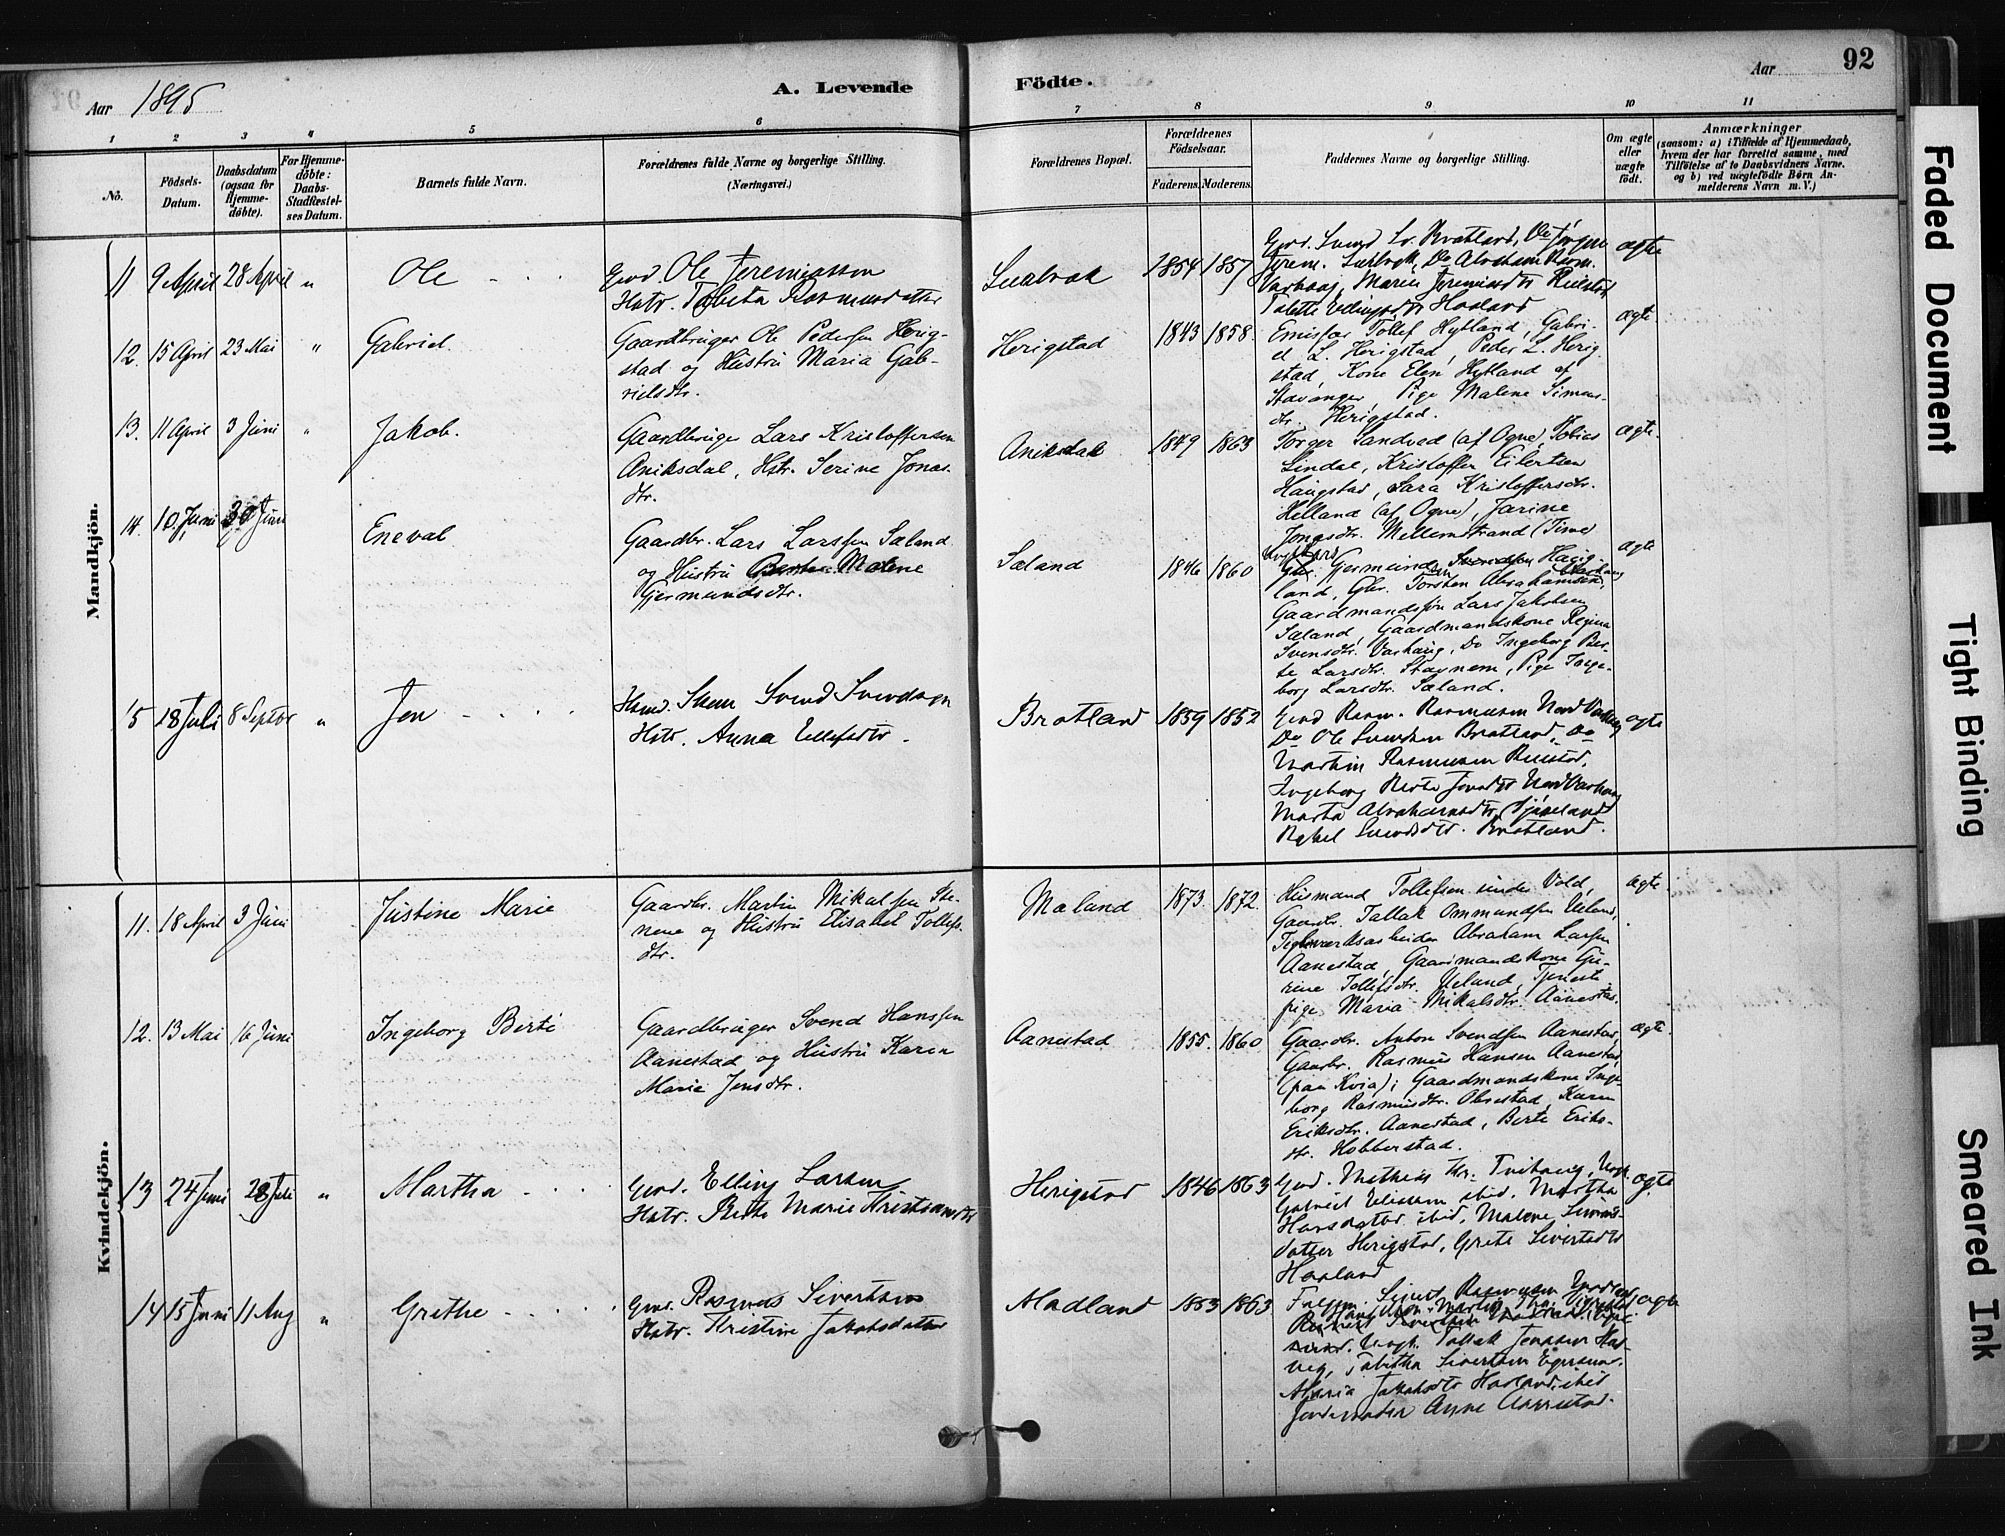 Aar 1895
A. Levende
Födte.
Aar
92
1 2 3 4 5 6 7 8 9 10 11
No.
Födsels-
Datum.
Daabsdatum
(ogsaa for
Hjemme-
döbte).
For Hjemme-
döbte:
Daabs-
Stadfæstel-
ses Datum.
Barnets fulde Navn.
Forældrenes fulde Navne og borgerlige Stilling.
(Næringsvei.)
Forældrenes Bopæl.
Forældrenes
Födselsaar.
Faderens. Moderens.
Faddernes Navne og borgerlige Stilling.
Om ægte
eller
uægte
födt.
Anmærkninger
(saasom: a) i Tilfælde af Hjemmedaab,
hvem der har forrettet samme, med
Tilföielse af to Daabsvidners Navne.
og b) ved uægtefödte Börn An-
melderens Navn m. V.)
Mandkjön.
11 9 April 28 April " Ole
Gmd. Ole Jeremiassen
Hstr. Tabita Rasmusdatter
1854 1857
ægte
12. 15 April 23 Mai " Gabriel.
Gaardbruger Ole Pedersen Herig-
stad og Hustru Maria Gab-
rielsdtr.
Herigstad
1843 1858.
Tollef Hytland, Gabri-
el L. Herigstad, Peder L. Herig-
stad, Kone Elen Hytland af
Stavanger, Pige Malene Simons-
dtr. Herigstad.
ægte
13. 11 April 3 Juni " Jakob.
Gaardbruger Lars Kristoffersen
Aniksdal, Hstr. Serine Jonas-
dtr.
Aniksdal
1849 1863
Torger Sandvad (af Ogne), Tobias
Lindal, Kristoffer Eilertsen
Haugstad, Sara Kristoffersdtr.
Helland (af Ogne), Jarine
Jonasdtr. Mellemstrand (Time)
ægte.
14. 10 Juni 30 Juni Eneval
Gaardbr. Lars Larssen Sæland
og Hustru Berte Malene
Gjermundsdtr.
Sæland
1846 1860
Gjermund Svendsen Haug-
land, Gbr. Torsten Abrahamsen
Gaardmandssøn Lars Jakobsen
Sæland, Gaardmandskone Regina
Svensdtr. Varhaug, Do Ingeborg Ber-
te Larsdtr. Stavnem, Pige Inge-
borg Larsdtr. Sæland.
ægte
15 18 Juli 8 Septbr " Jon
Svend Svendsen
Hstr. Anna Ellefsdtr.
Bratland
1859 1852
Gmd Rasm. Rasmussen Nord Varhaug
Do Ole Svendsen Bratland, Do
Martin Rasmussen
Ingeborg Berte Nord Varhaug
Marta Abrahamsdtr
Rakel Svendsdtr. Bratland.
ægte
Kvindekjön.
11. 18 April 3 Juni Justine Marie
Gaardbr. Martin Mikalsen Ste-
nene og Hustru Elisabet Tollefs-
dtr.
Mæland
1873. 1872.
Husmand Tollefsen under Vold,
Gaardbr. Tallak Ommundsen Ueland,
Teglværksarbeider Abraham Larsen
Aanestad, Gaardmandskone Gu-
rine Tollefsdtr. Ueland, Tjeneste-
pige Maria Mikalsdtr. Aanestad.
ægte.
12. 13 Mai 16 Juni Ingeborg Berte
Gaardbruger Svend Hanssen
Aanestad og Hustru Karen
Marie Jensdtr.
Aanestad
1855. 1860
Gaardbr. Anton Svendsen Aanestad,
Gaardbr. Rasmus Hansen Aanestad
(paa Kvia); Gaardmandskone Inge-
borg Rasmusdtr. Obrestad, Karen
Eriksdtr. Aanestad, Berte Eriks-
dtr. Hobberstad.
ægte
13 24 Juni 28 Juli " Martha
Gmd. Elling Larsen
Hstr. Berte Marie Kristiansdtr
Herigstad
1846 1863
Gmd. Mathias
ibid. Martha
Hansdatter ibid, Malene Simons-
datter Herigstad, Grete Sivertsdtr
Haaland
ægte
14 15 Juni 11 Aug " Grethe
Gmd. Rasmus Sivertsen
Hstr. Kristine Jakobsdatter
Madland
1863 1863
Sivert Rasmussen
Ungk. Tallak Jonassen
Tabitha Sivertsen
Maria Jakobsdtr Haaland, ibid
Jordmoder Anne Aanestad.
ægte
Faded Document
Tight Binding
Smeared Ink